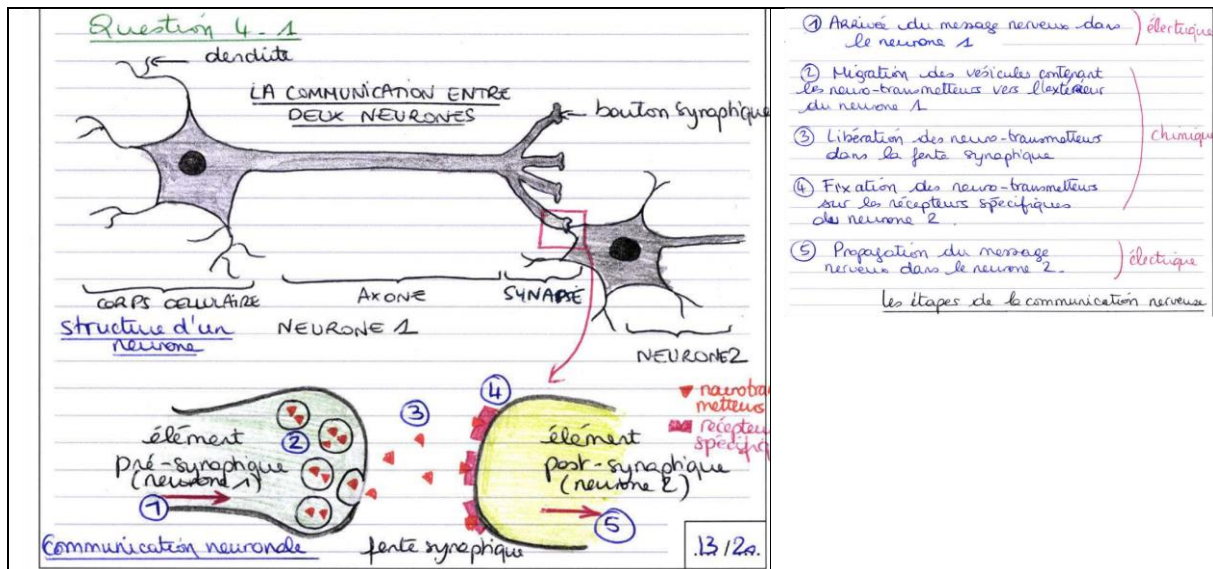 Question 4-1
dendrite
LA COMMUNICATION ENTRE
DEUX NEURONES
bouton synaptique
CORPS CELLULAIRE
AXONE
SYNAPSE
structure d'un
neurone
NEURONE 1
NEURONE 2
neurotra
metteurs
récepteu
spécifiq
élément
pré-synaptique
(neurone 1)
élément
post-synaptique
(neurone 2)
1
2
3
4
5
Communication neuronale
fente synaptique
13/2a.
1 Arrivée du message nerveux dans
le neurone 1
électrique
2 Migration des vésicules contenant
les neuro-transmetteurs vers l'extérieur
du neurone 1
3 Libération des neuro-transmetteurs
dans la fente synaptique
chimique
4 Fixation des neuro-transmetteurs
sur les récepteurs spécifiques
du neurone 2.
5 Propagation du message
nerveux dans le neurone 2.
électrique
Les étapes de la communication nerveuse